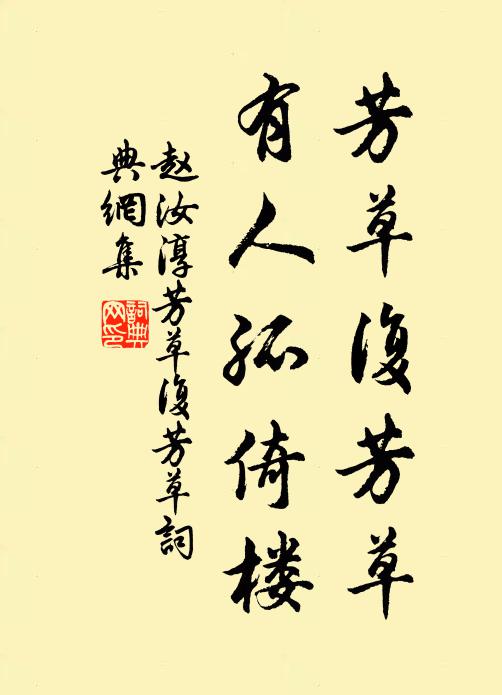 芳草復芳草
有人孤倚楼
赵汝淳芳草復芳草詞
典網集
詞典
网印